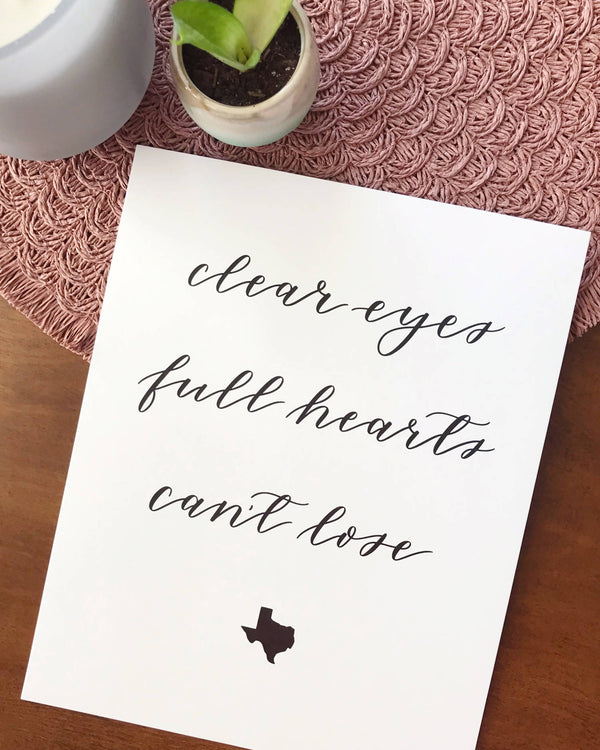 clear eyes
full hearts
can't lose